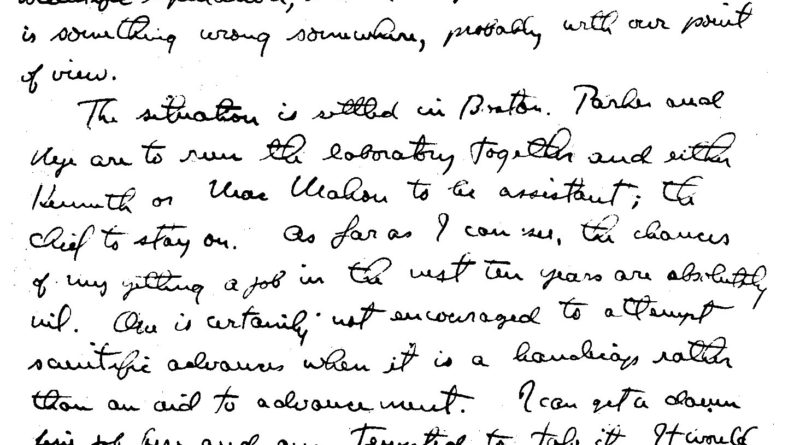 is something wrong somewhere, probably with our point
of view.
The situation is settled in Boston. Parker and
Nye are to run the laboratory together and either
Kenneth or MacMahon to be assistant; the
chief to stay on. As far as I can see, the chances
of my getting a job in the next ten years are absolutely
nil. One is certainly not encouraged to attempt
scientific advances when it is a handicap rather
than an aid to advancement. I can get a damn
fine job here and am tempted to take it. It would